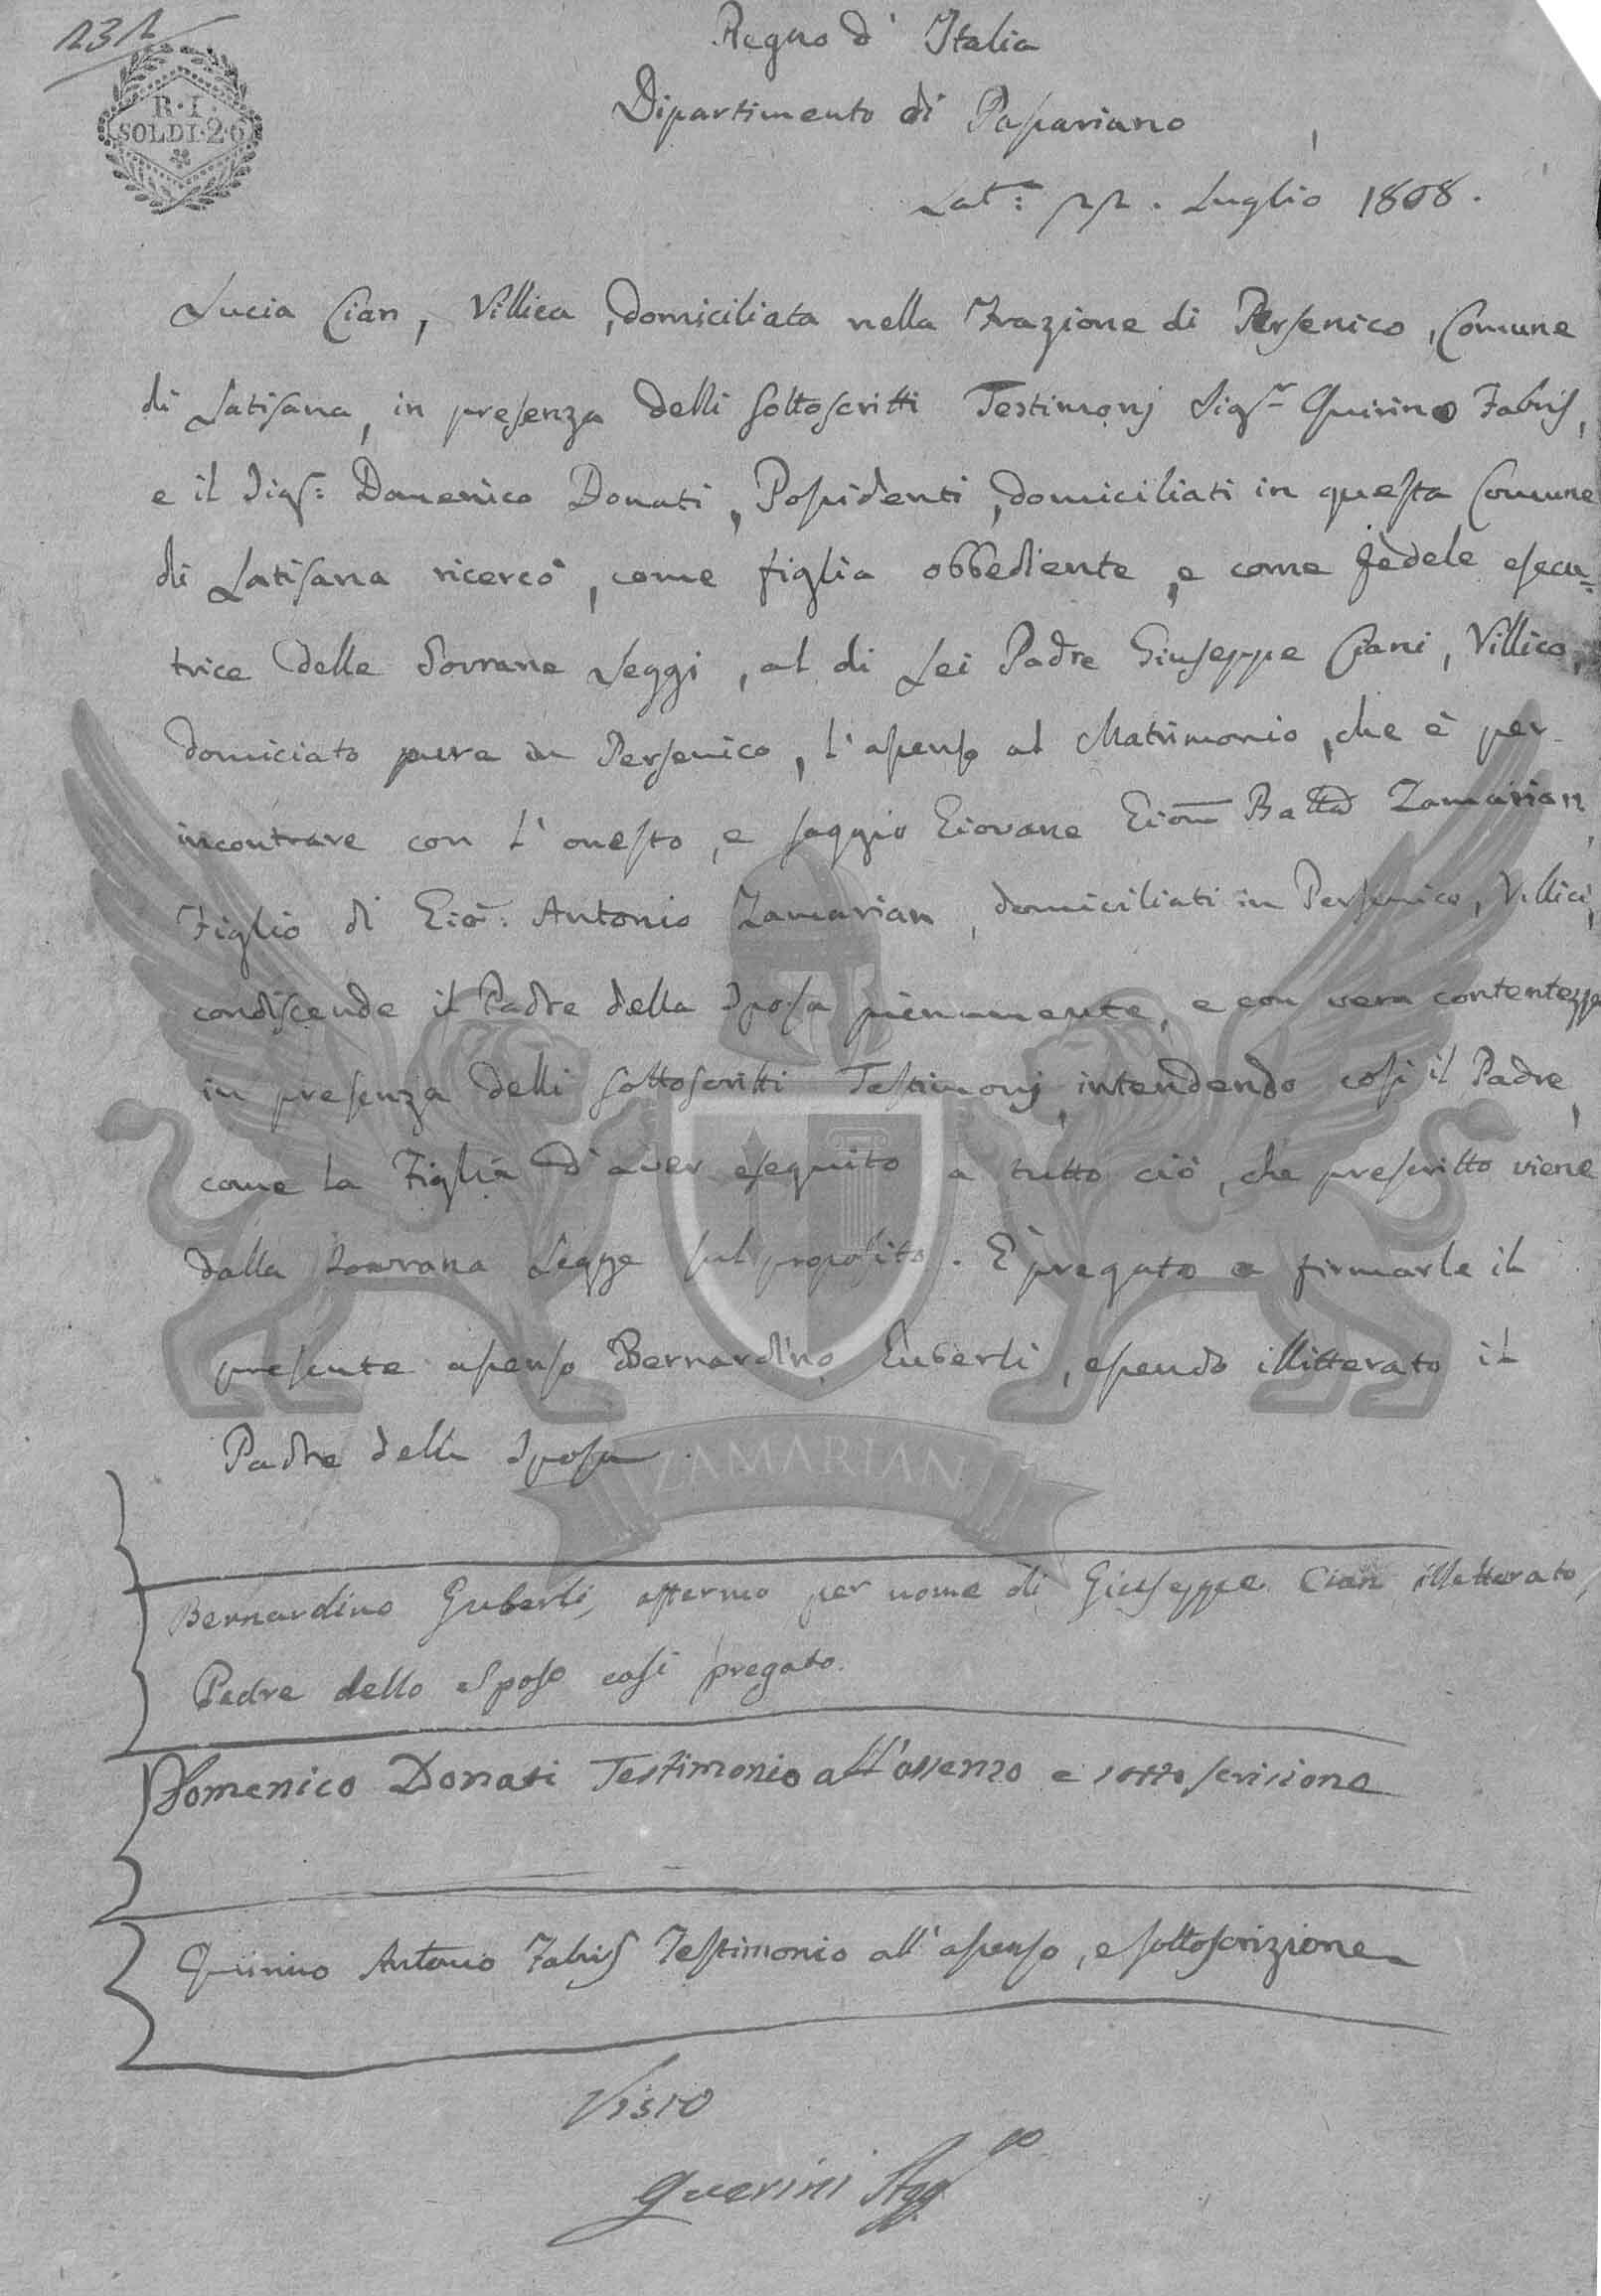 R·I·
SOLDI·2·6
Regno d' Italia
Dipartimento di Paßariano
Lat.ª: Luglio 1808.
Lucia Cian, Villica, domiciliata nella Frazione di Persenico, Comune
di Latisana, in presenza delli sottoscritti Testimonj Sig.r Quirino Fabris,
e il Sig.r: Domenico Donati, Poßidenti, domiciliati in questa Comune
di Latisana ricercò, come figlia obbediente, e come fedele esecu-
trice delle Sovrane Leggi, al di Lei Padre Giuseppe Ciani, Villico,
domiciato pure in Persenico, l'aßenso al Matrimonio, che è per
incontrare con l'onesto, e saggio Giovane Giom Batta Zamarian,
Figlio di Gio: Antonio Zamarian, domiciliati in Persenico, Villici,
condiscende il Padre della Sposa pienamente, e con vera contentezza
in presenza delli sottoscritti Testimonj, intendendo così il Padre,
come la Figlia d'aver eseguito a tutto ciò, che prescritto viene
dalla Sovrana Legge sul proposito. È pregato a firmarle il
presente aßenso Bernardino Guberli, eßendo illitterato il
Padre della Sposa.
ZAMARIAN
Bernardino Guberli, affermo per nome di Giuseppe Cian illetterato,
Padre dello Sposo così pregato.
Domenico Donati Testimonio all'assenzo e sottoscrisione
Quirino Antonio Fabris Testimonio all'aßenso, e sottoscrizione
Visto
Querini Agg.to